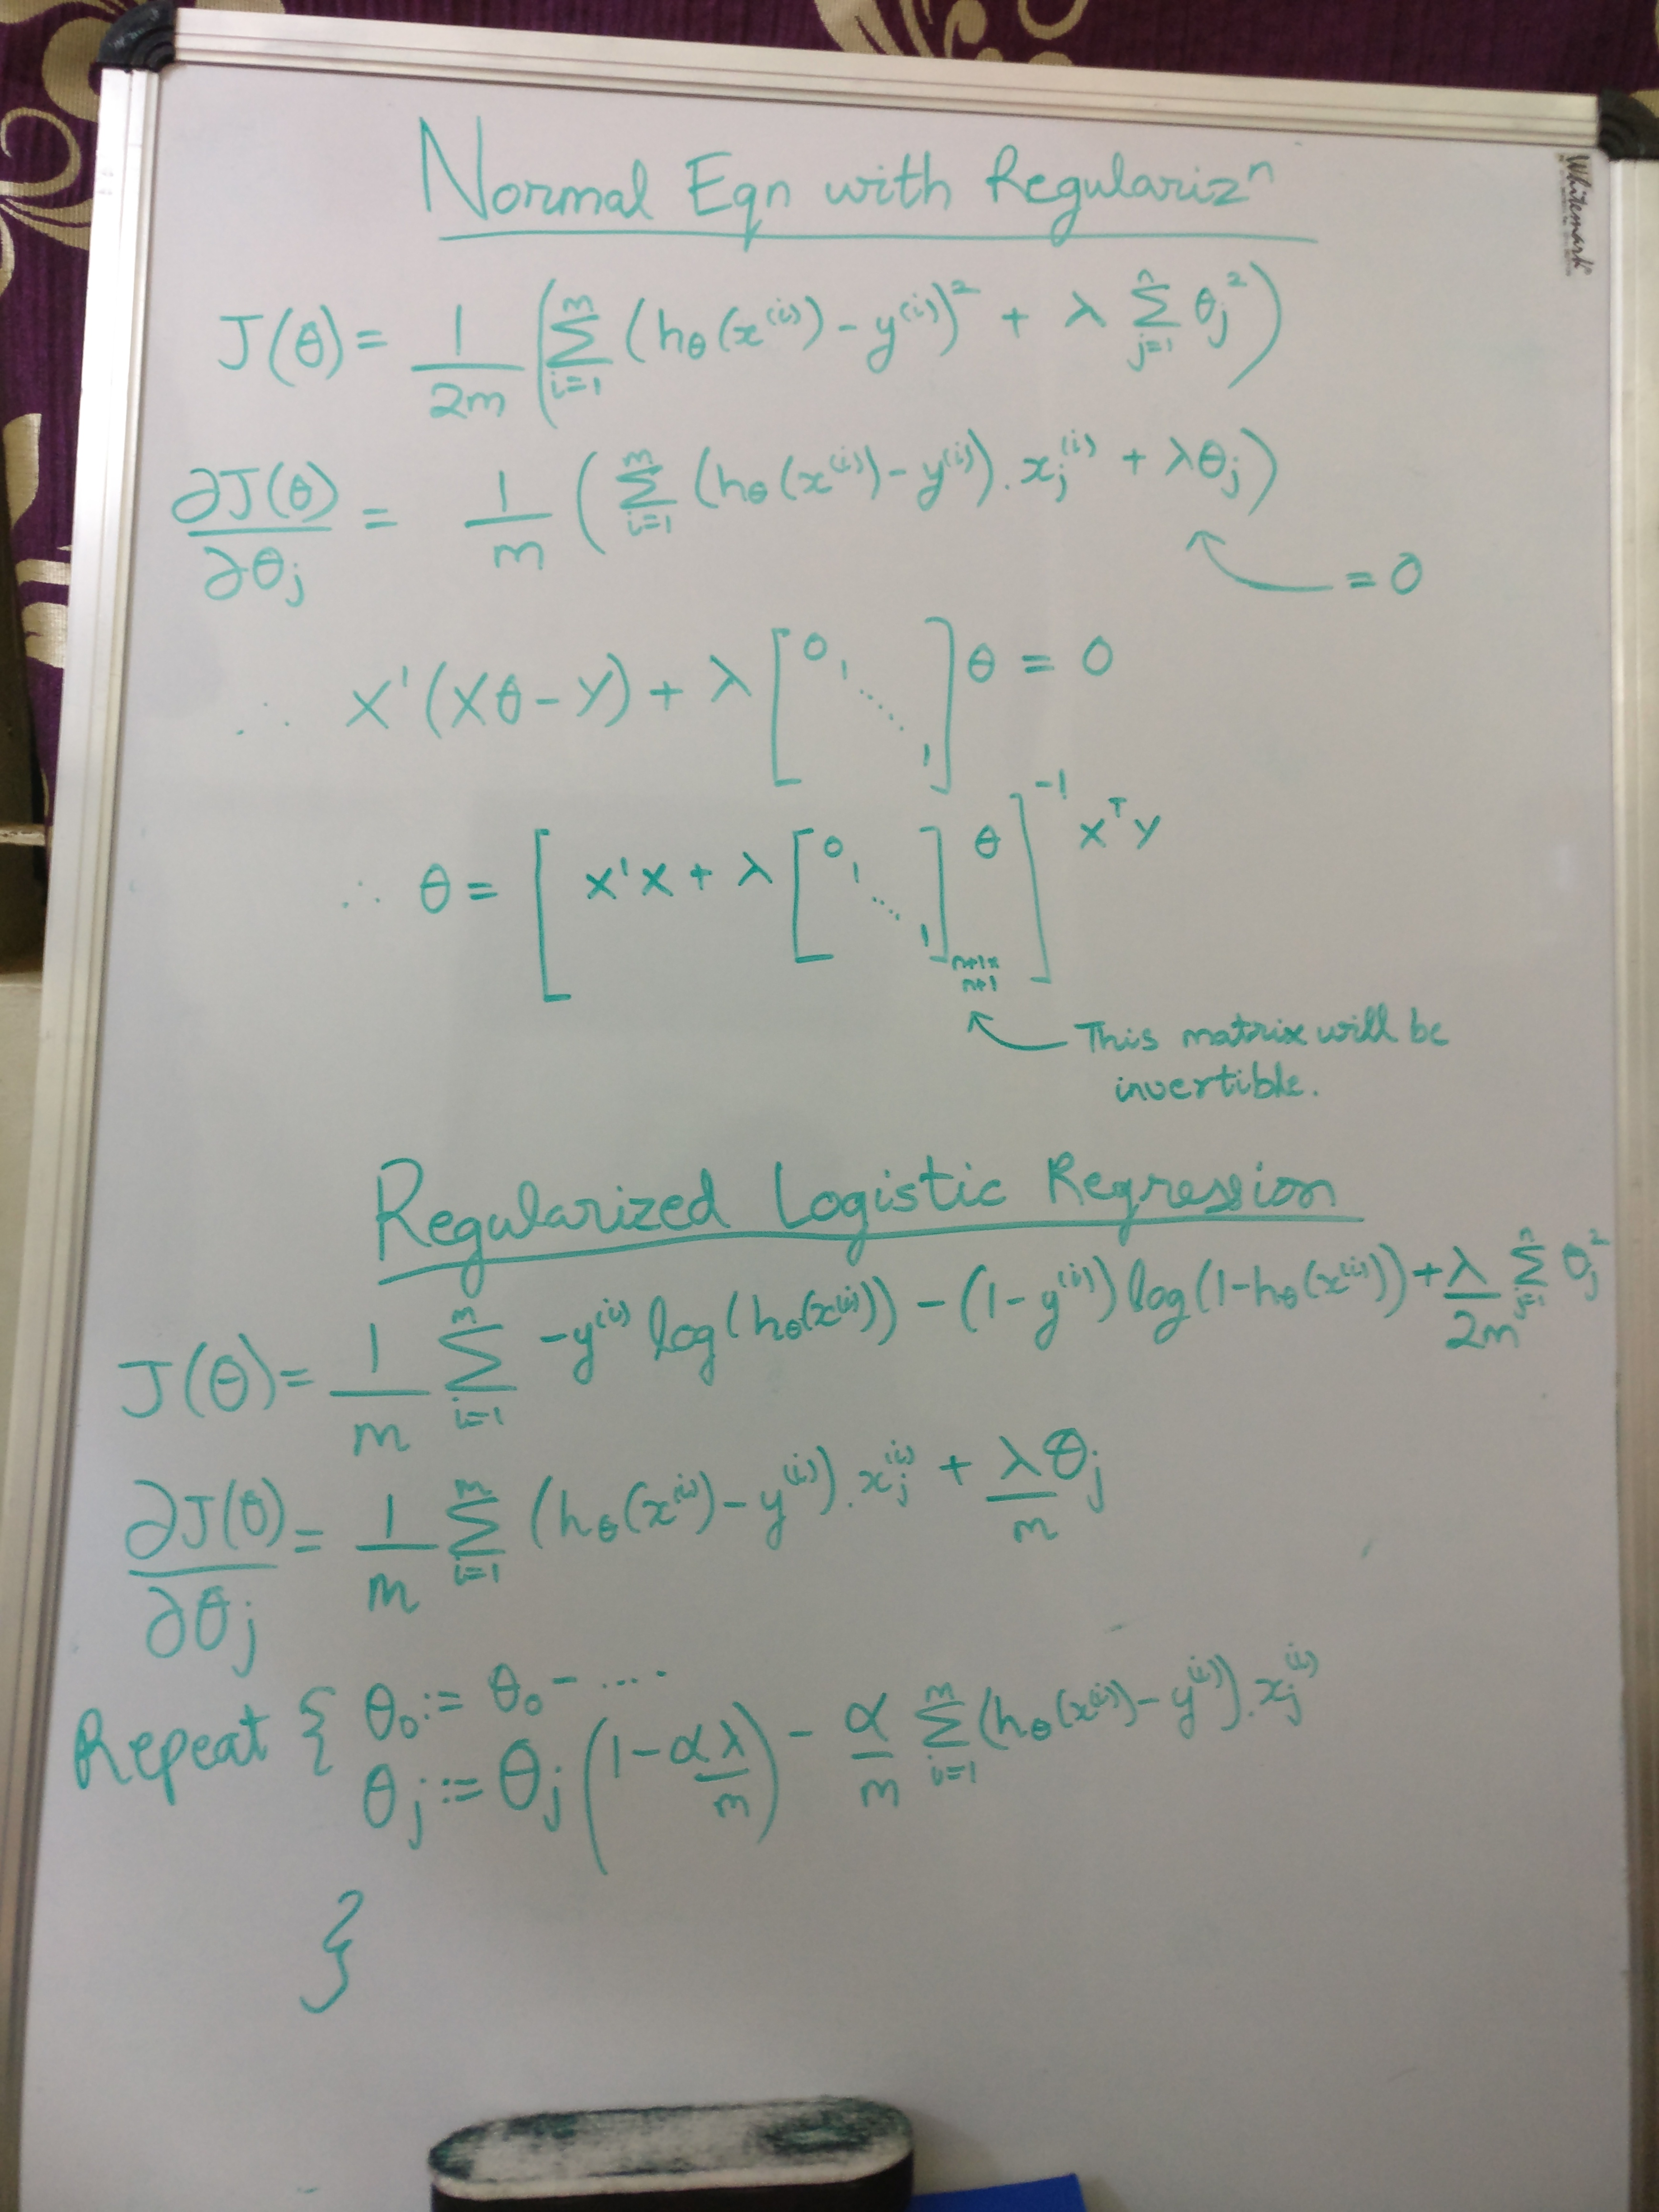 Normal Eqn with Regularizⁿ
Whitemark
J(θ) = 1/2m ( Σ_{i=1}^{m} (h_θ(x^{(i)}) - y^{(i)})² + λ Σ_{j=1}^{n} θ_j² )
∂J(θ)/∂θ_j = 1/m ( Σ_{i=1}^{m} (h_θ(x^{(i)}) - y^{(i)}) . x_j^{(i)} + λθ_j )
= 0
∴ X'(Xθ - Y) + λ [0 1 ⋱ 1] θ = 0
∴ θ = [ X'X + λ [0 1 ⋱ 1]_{n+1 × n+1} θ ]^{-1} X^T Y
This matrix will be
invertible.
Regularized Logistic Regression
J(θ) = 1/m Σ_{i=1}^{m} -y^{(i)} log(h_θ(x^{(i)})) - (1 - y^{(i)}) log(1 - h_θ(x^{(i)})) + λ/2m Σ_{j=1}^{n} θ_j²
∂J(θ)/∂θ_j = 1/m Σ_{i=1}^{m} (h_θ(x^{(i)}) - y^{(i)}) . x_j^{(i)} + λθ_j/m
Repeat { θ_0 := θ_0 - ....
θ_j := θ_j (1 - αλ/m) - α/m Σ_{i=1}^{m} (h_θ(x^{(i)}) - y^{(i)}) . x_j^{(i)}
}